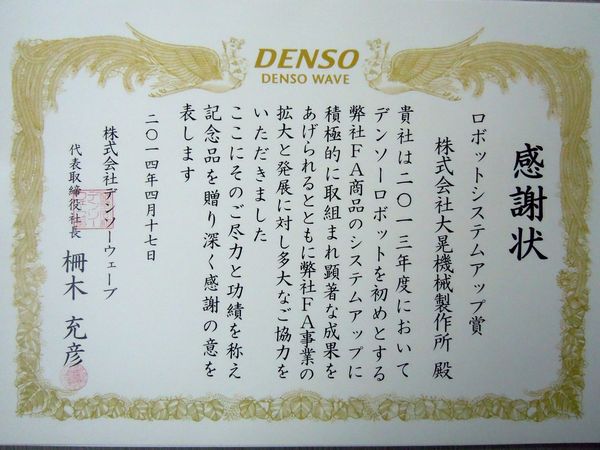 DENSO
DENSO WAVE
感謝状
ロボットシステムアップ賞
株式会社大晃機械製作所 殿
貴社は二〇一三年度において
デンソーロボットを初めとする
弊社FA商品のシステムアップに
積極的に取組まれ顕著な成果を
あげられるとともに弊社FA事業の
拡大と発展に対し多大なご協力を
いただきました
ここにそのご尽力と功績を称え
記念品を贈り深く感謝の意を
表します
二〇一四年四月十七日
株式会社デンソーウェーブ
代表取締役社長 柵木充彦